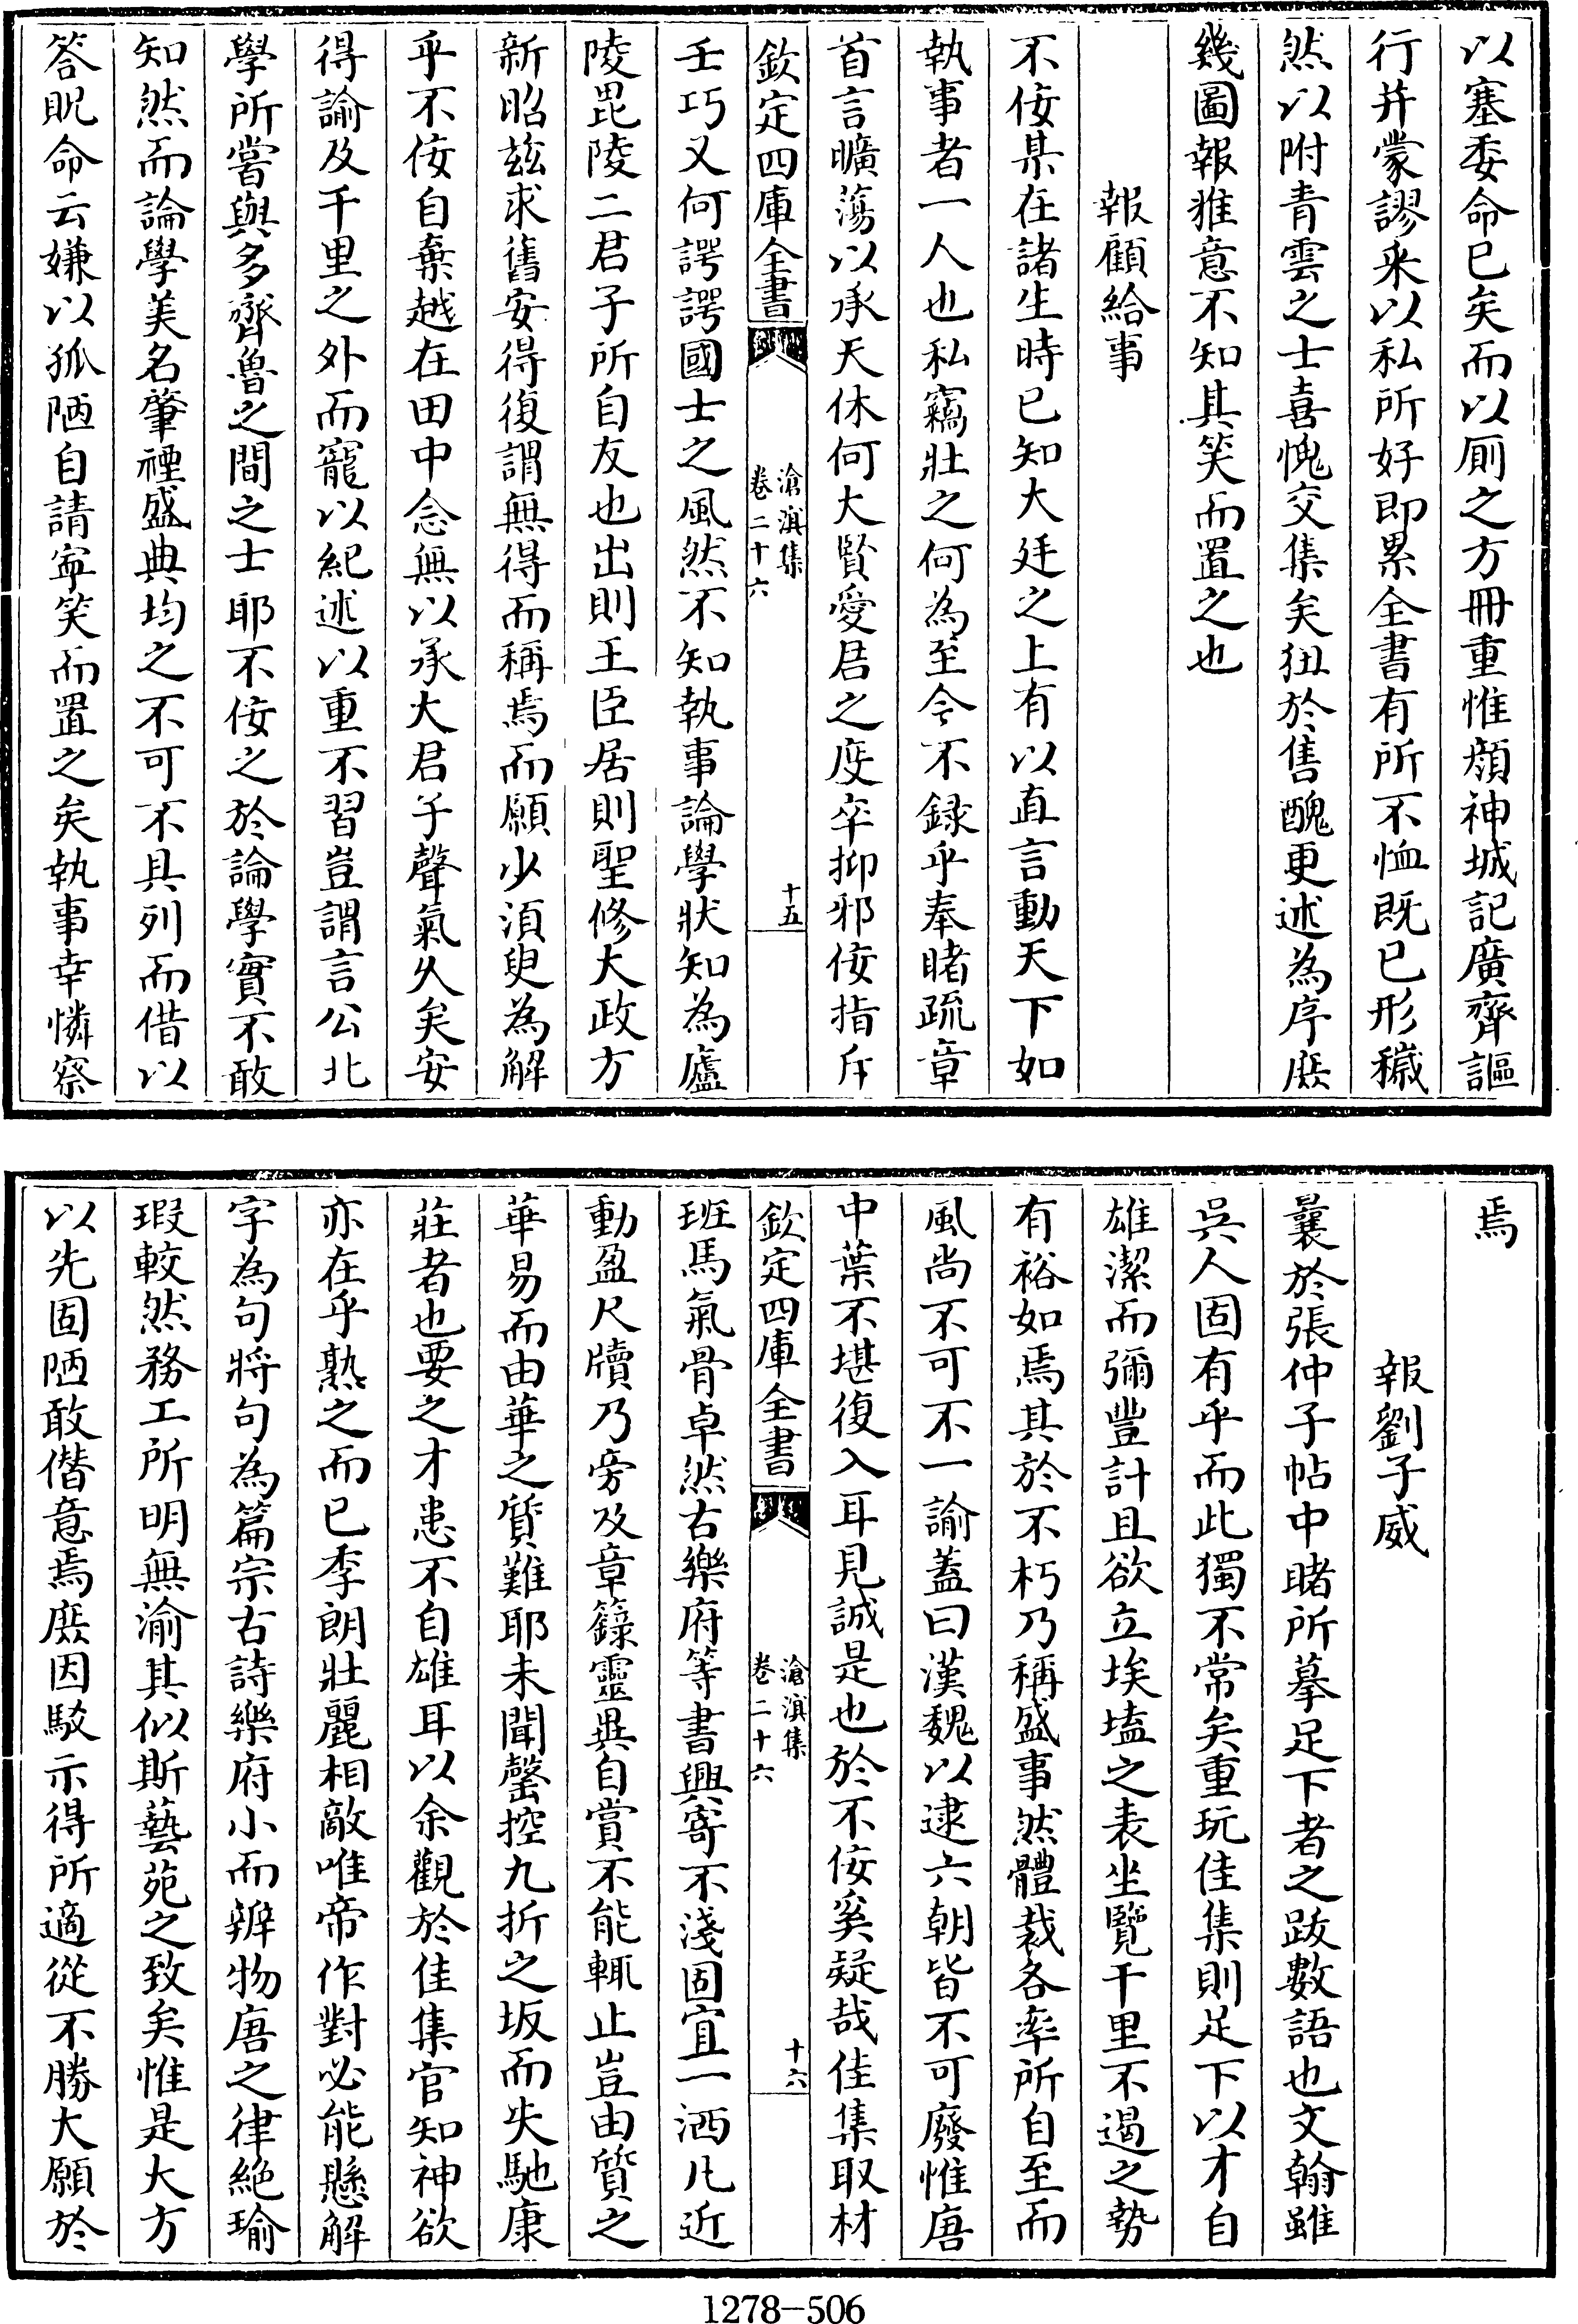 以塞委命已矣而以厠之方冊重惟顔神城記廣齊謳
行并蒙謬采以私所好即累全書有所不恤既已形穢
然以附青雲之士喜愧交集矣狃於售醜更述為序庶
幾圖報雅意不知其笑而置之也
報顧給事
不佞某在諸生時已知大廷之上有以直言動天下如
執事者一人也私竊壯之何為至今不録乎奉睹疏章
首言曠蕩以承天休何大賢愛君之度卒抑邪佞指斥
欽定四庫全書
滄溟集
卷二十六
十五
壬巧又何諤諤國士之風然不知執事論學狀知為廬
陵毘陵二君子所自友也出則王臣居則聖修大政方
新昭兹求舊安得復謂無得而稱焉而願少湏臾為解
乎不佞自棄越在田中念無以承大君子聲氣久矣安
得諭及千里之外而寵以紀述以重不習豈謂言公北
學所嘗與多齊魯之間之士耶不佞之於論學實不敢
知然而論學美名肇禋盛典均之不可不具列而借以
答貺命云嫌以孤陋自請寧笑而置之矣執事幸憐察
焉
報劉子威
曩於張仲子帖中睹所摹足下者之跋數語也文翰雖
吳人固有乎而此獨不常矣重玩佳集則足下以才自
雄潔而彌豐計且欲立埃壒之表坐覽千里不遏之勢
有裕如焉其於不朽乃稱盛事然體裁各率所自至而
風尚不可不一諭蓋曰漢魏以逮六朝皆不可廢惟唐
中葉不堪復入耳見誠是也於不佞奚疑哉佳集取材
欽定四庫全書
滄溟集
卷二十六
十六
班馬氣骨卓然古樂府等書興寄不淺固宜一洒凡近
動盈尺牘乃旁及章籙靈異自賞不能輒止豈由質之
華易而由華之質難耶未聞罄控九折之坂而失馳康
莊者也要之才患不自雄耳以余觀於佳集官知神欲
亦在乎熟之而已李朗壯麗相敵唯帝作對必能懸解
字為句將句為篇宗古詩樂府小而辨物唐之律絶瑜
瑕較然務工所明無渝其似斯藝苑之致矣惟是大方
以先固陋敢僭意焉庶因駮示得所適從不勝大願於
1278-506